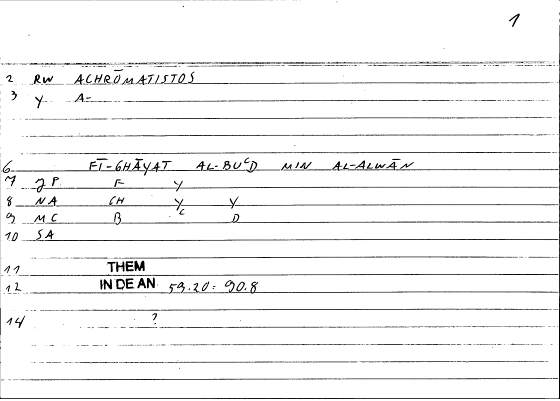 1
2 RW ACHRŌMATISTOS
3 Y A-
6 FĪ-GHĀYAT AL-BUᶜD MIN AL-ALWĀN
7 JP F Y
8 NA GH Y Y
9 MC B ᶜ D
10 SA
11 THEM
12 IN DE AN 59.20 = 90.8
14 ?